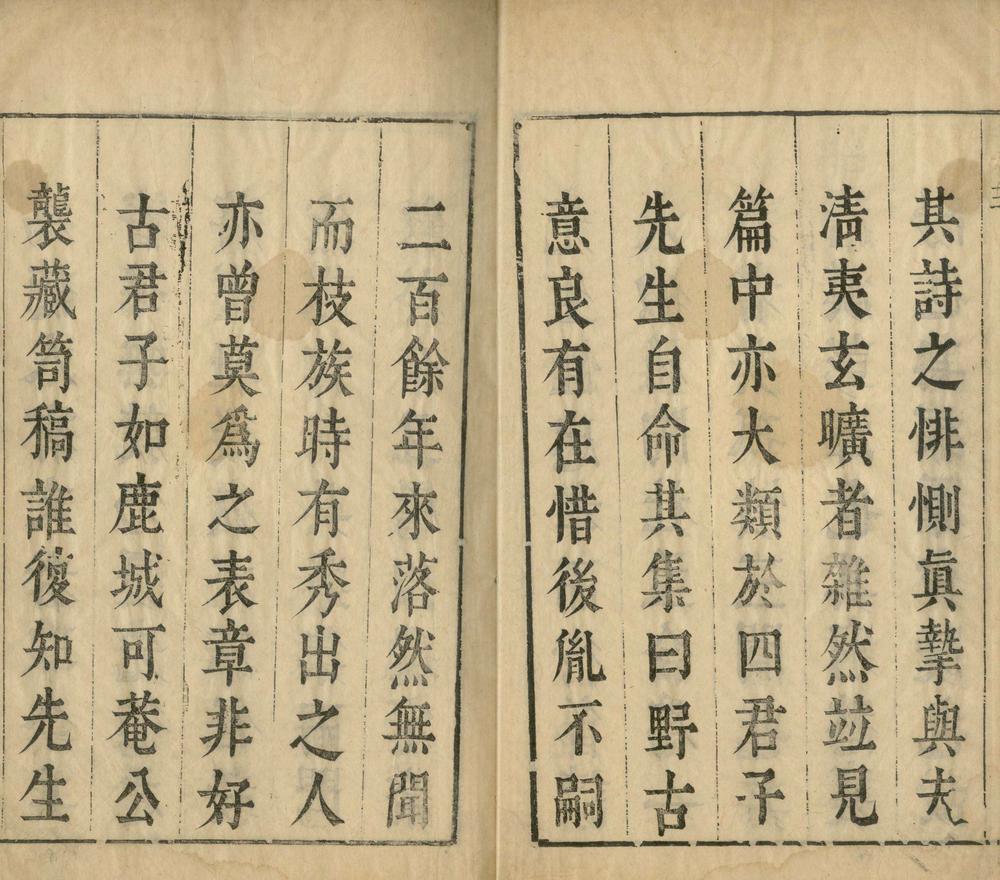 其詩之悱惻眞摯與夫
淸夷玄曠者雜然竝見
篇中亦大類於四君子
先生自命其集曰野古
意良有在惜後胤不嗣
二百餘年來落然無聞
而枝族時有秀出之人
亦曾莫爲之表章非好
古君子如鹿城可菴公
襲藏笥稿誰復知先生